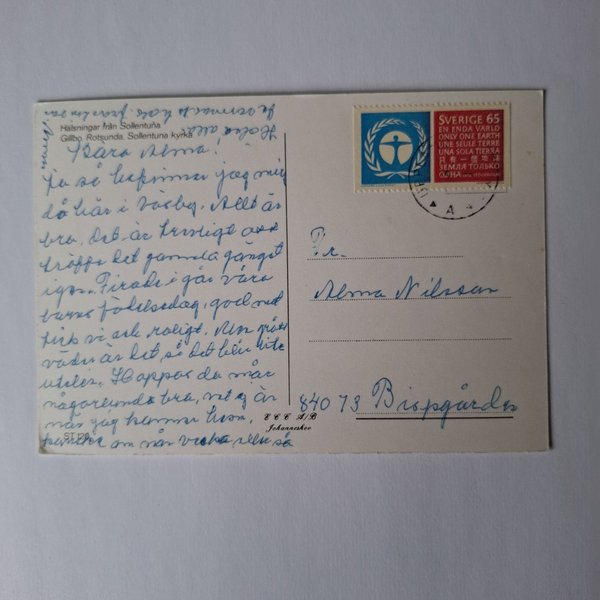 Hälsningar från Sollentuna
Gillbo. Rotsunda. Sollentuna kyrka
Kära Alma!
Ja så befinner jag mig
då här i Väsby. Allt är
bra, det är trevligt att
träffa det gamla gänget
igen. Firade i går våra
barns födelsedag, god mat
fick vi och roligt. Men grått
väder är det, så det blir lite
uteliv. Hoppas du mår
någorlunda bra, vet ej är
när jag kommer hem,
kanske om någon vecka eller så
SVERIGE 65
EN ENDA VÄRLD
ONLY ONE EARTH
UNE SEULE TERRE
UNA SOLA TIERRA
只有一個地球
ЗЕМЛЯ ТОЛЬКО
ОДНА
A
Fr.
Alma Nilsson
840 73 Bispgården
E C C A/B
Johanneshov